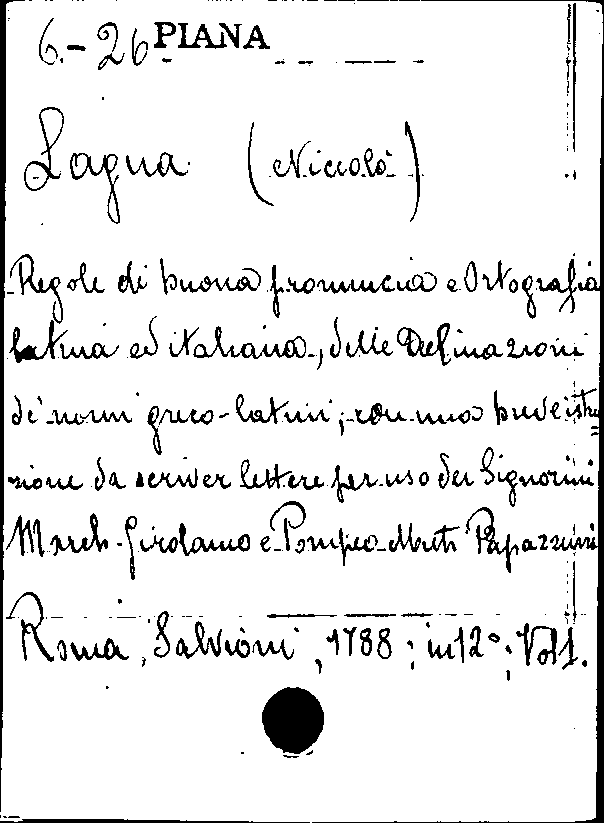 6.-26 PIANA
Lagua (Niccolò)
Regole di buona pronuncia e Ortografia
latina ed italiana, delle Declinazioni
de' nomi greco-latini; con una breve istru
zione da scriver lettere per uso dei Signorini
March. Girolamo e Pompeo Muti Papazzurri
Roma, Salvioni, 1788; in 12°; Vol 1.